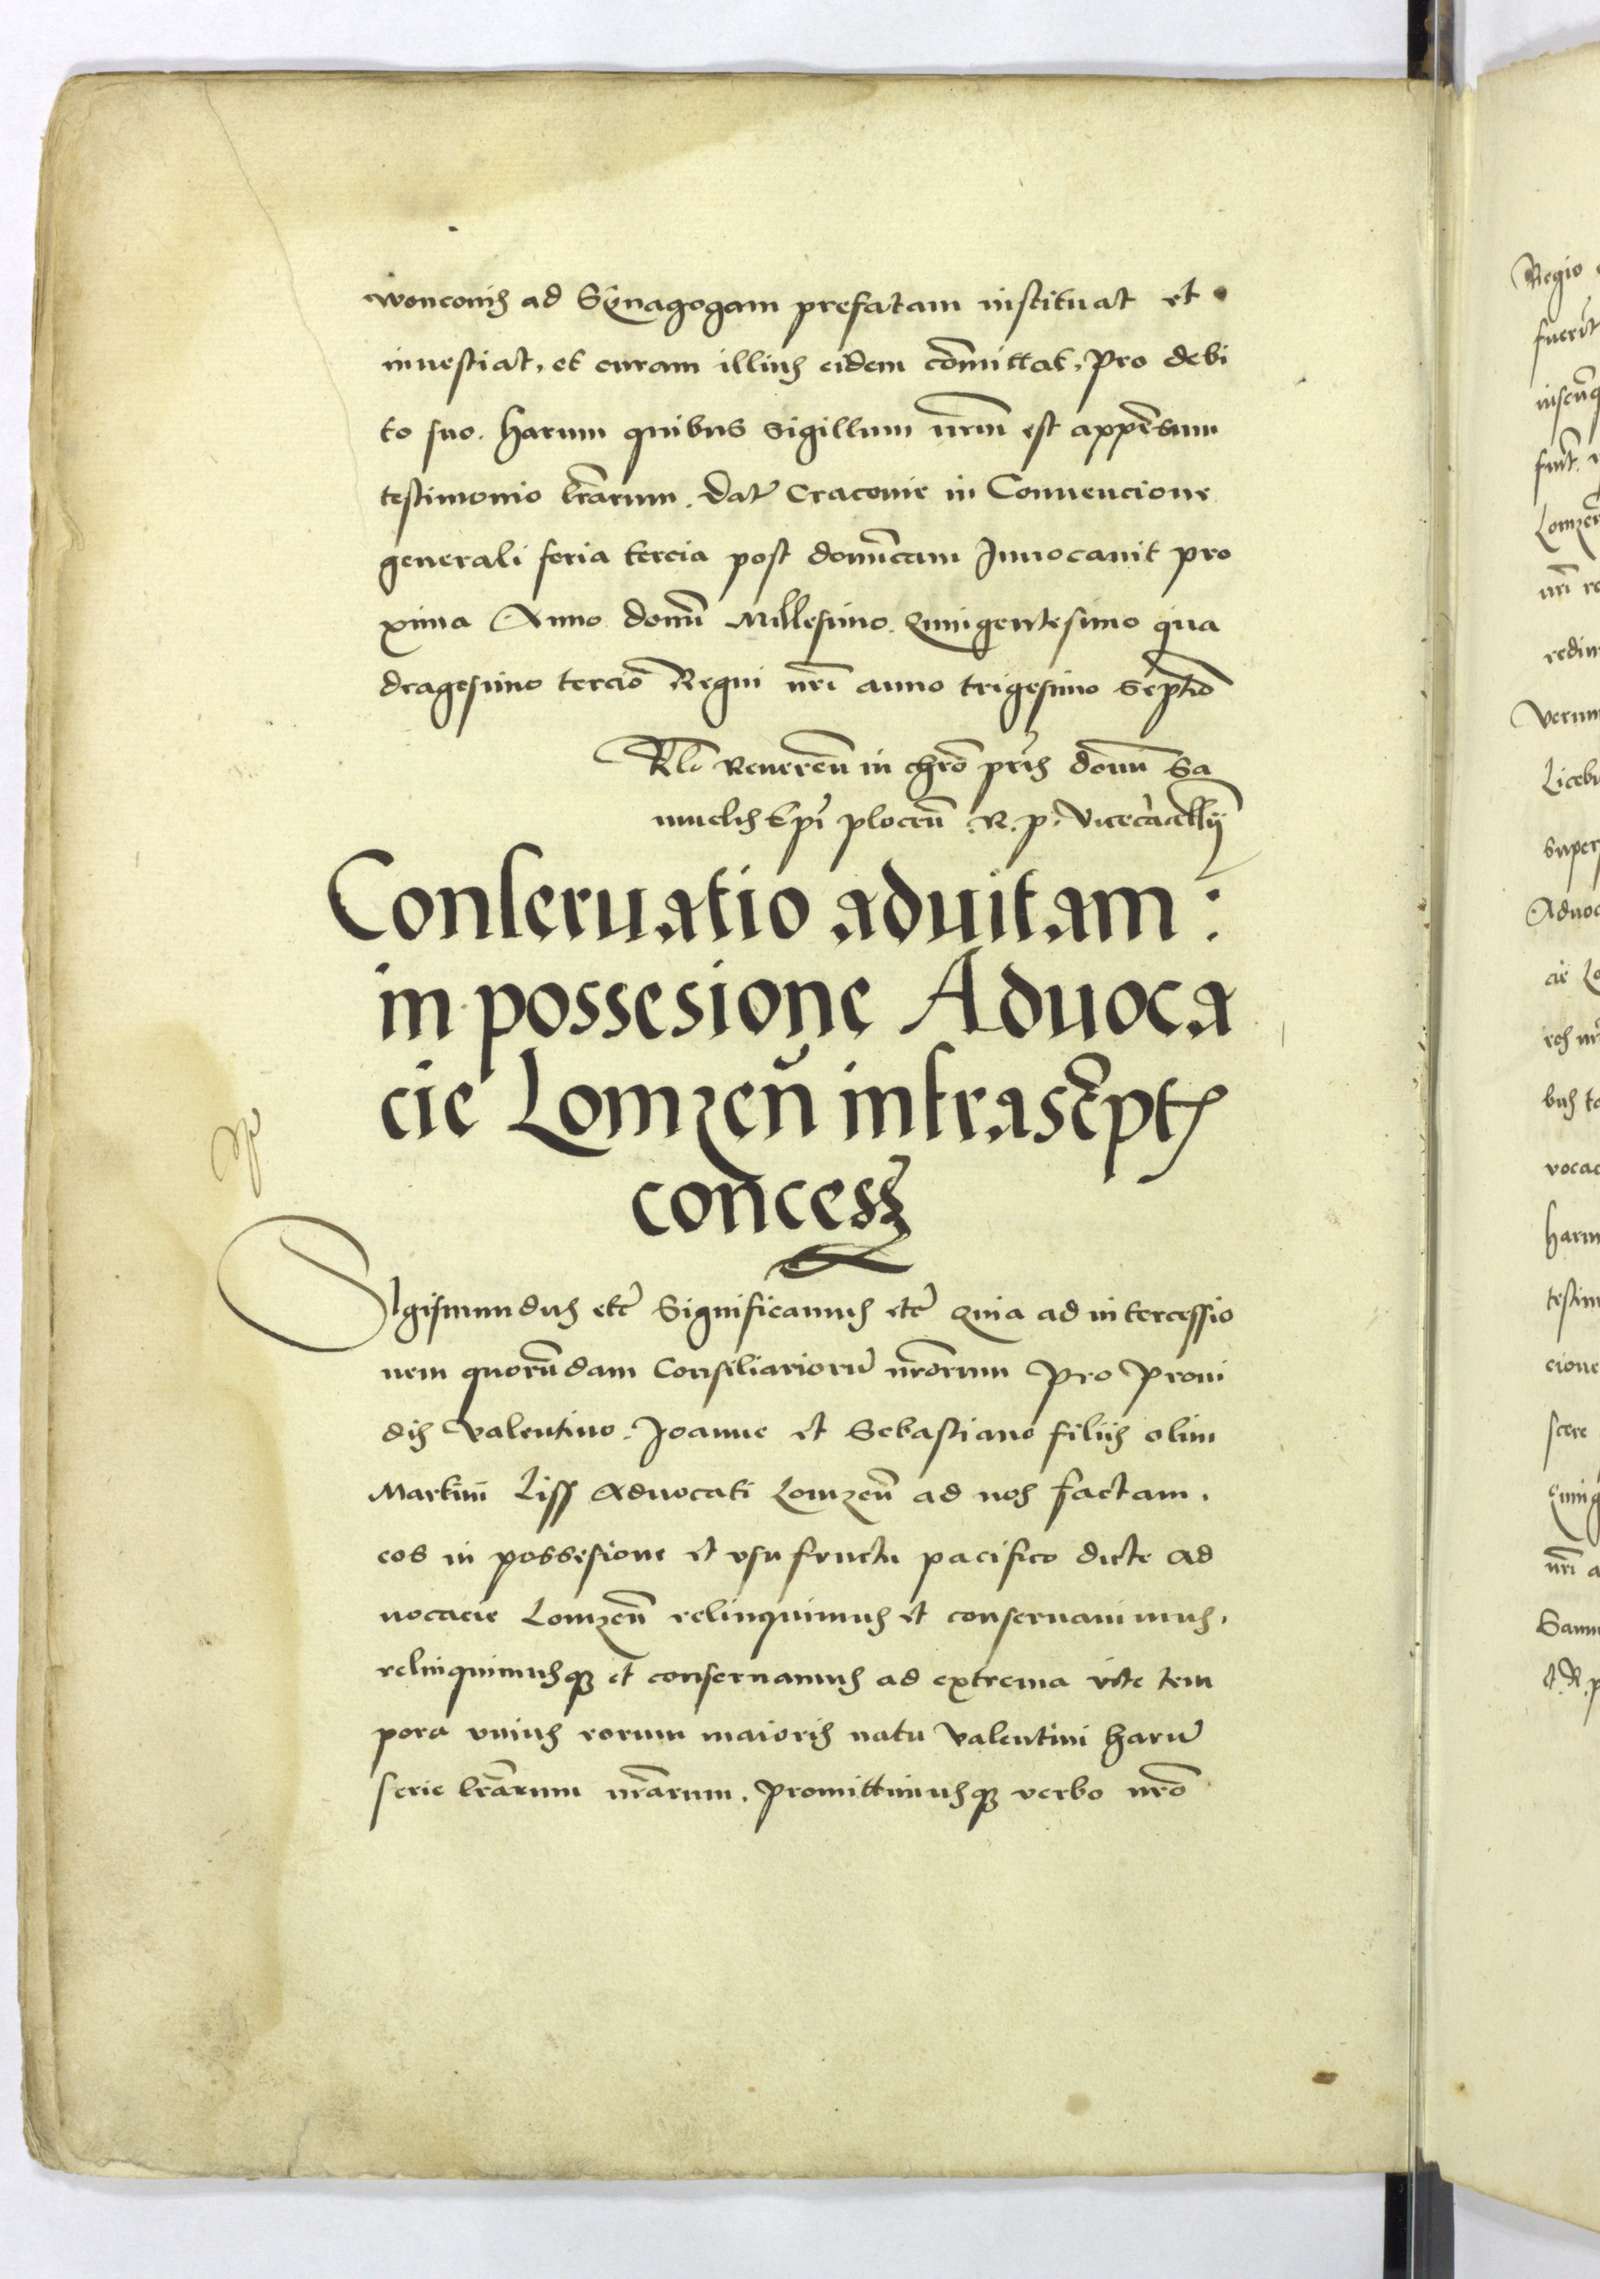 wonconis ad Synagogam prefatam instituat et
inuestiat, et curam illius eidem com̄ittat, Pro debi
to suo. Harum quibus Sigillum nr̄m est appēsum
testimonio lr̄arum. Dat̄ Cracouie in Conuencione
generali feria tercia post domīcam Inuocauit pro
xima Anno domī Millesimo Quingentesimo qua
dragesimo tercio Regni nr̄i anno trigesimo septīo
Rlō Reuerēn in chrō pr̄is domī Sa
muelis Ep̄i plocen̄ .R. p. Vicecācellii
Conseruatio aduitam :
in possesione Aduoca
cie Lomzen̄ infrascr̄pt
concess
Sigismundus etc̄ Significamus etc̄ Quia ad intercessio
nem quorūdam Consiliariorū nr̄orum Pro Proui
dis Valentino. Joanne et Sebastiano filiis olim
Martini Liss Aduocati Lomzen̄ ad nos factam.
eos in possesione et vsufructu pacifico dicte Ad
uocacie Lomzen̄ relinquimus et conseruauimus.
relinquimusq; et conseruamus ad extrema vite tem
pora vnius eorum maioris natu Valentini harū
serie lr̄arum nr̄arum. Promittimusq; verbo nr̄o
Regio
fuerit
Lomzen̄
nr̄i
Verum
super
Aduoc
cie Lo
bus
vocac
Harum
testim
cione
Quing
nr̄i a
Samu